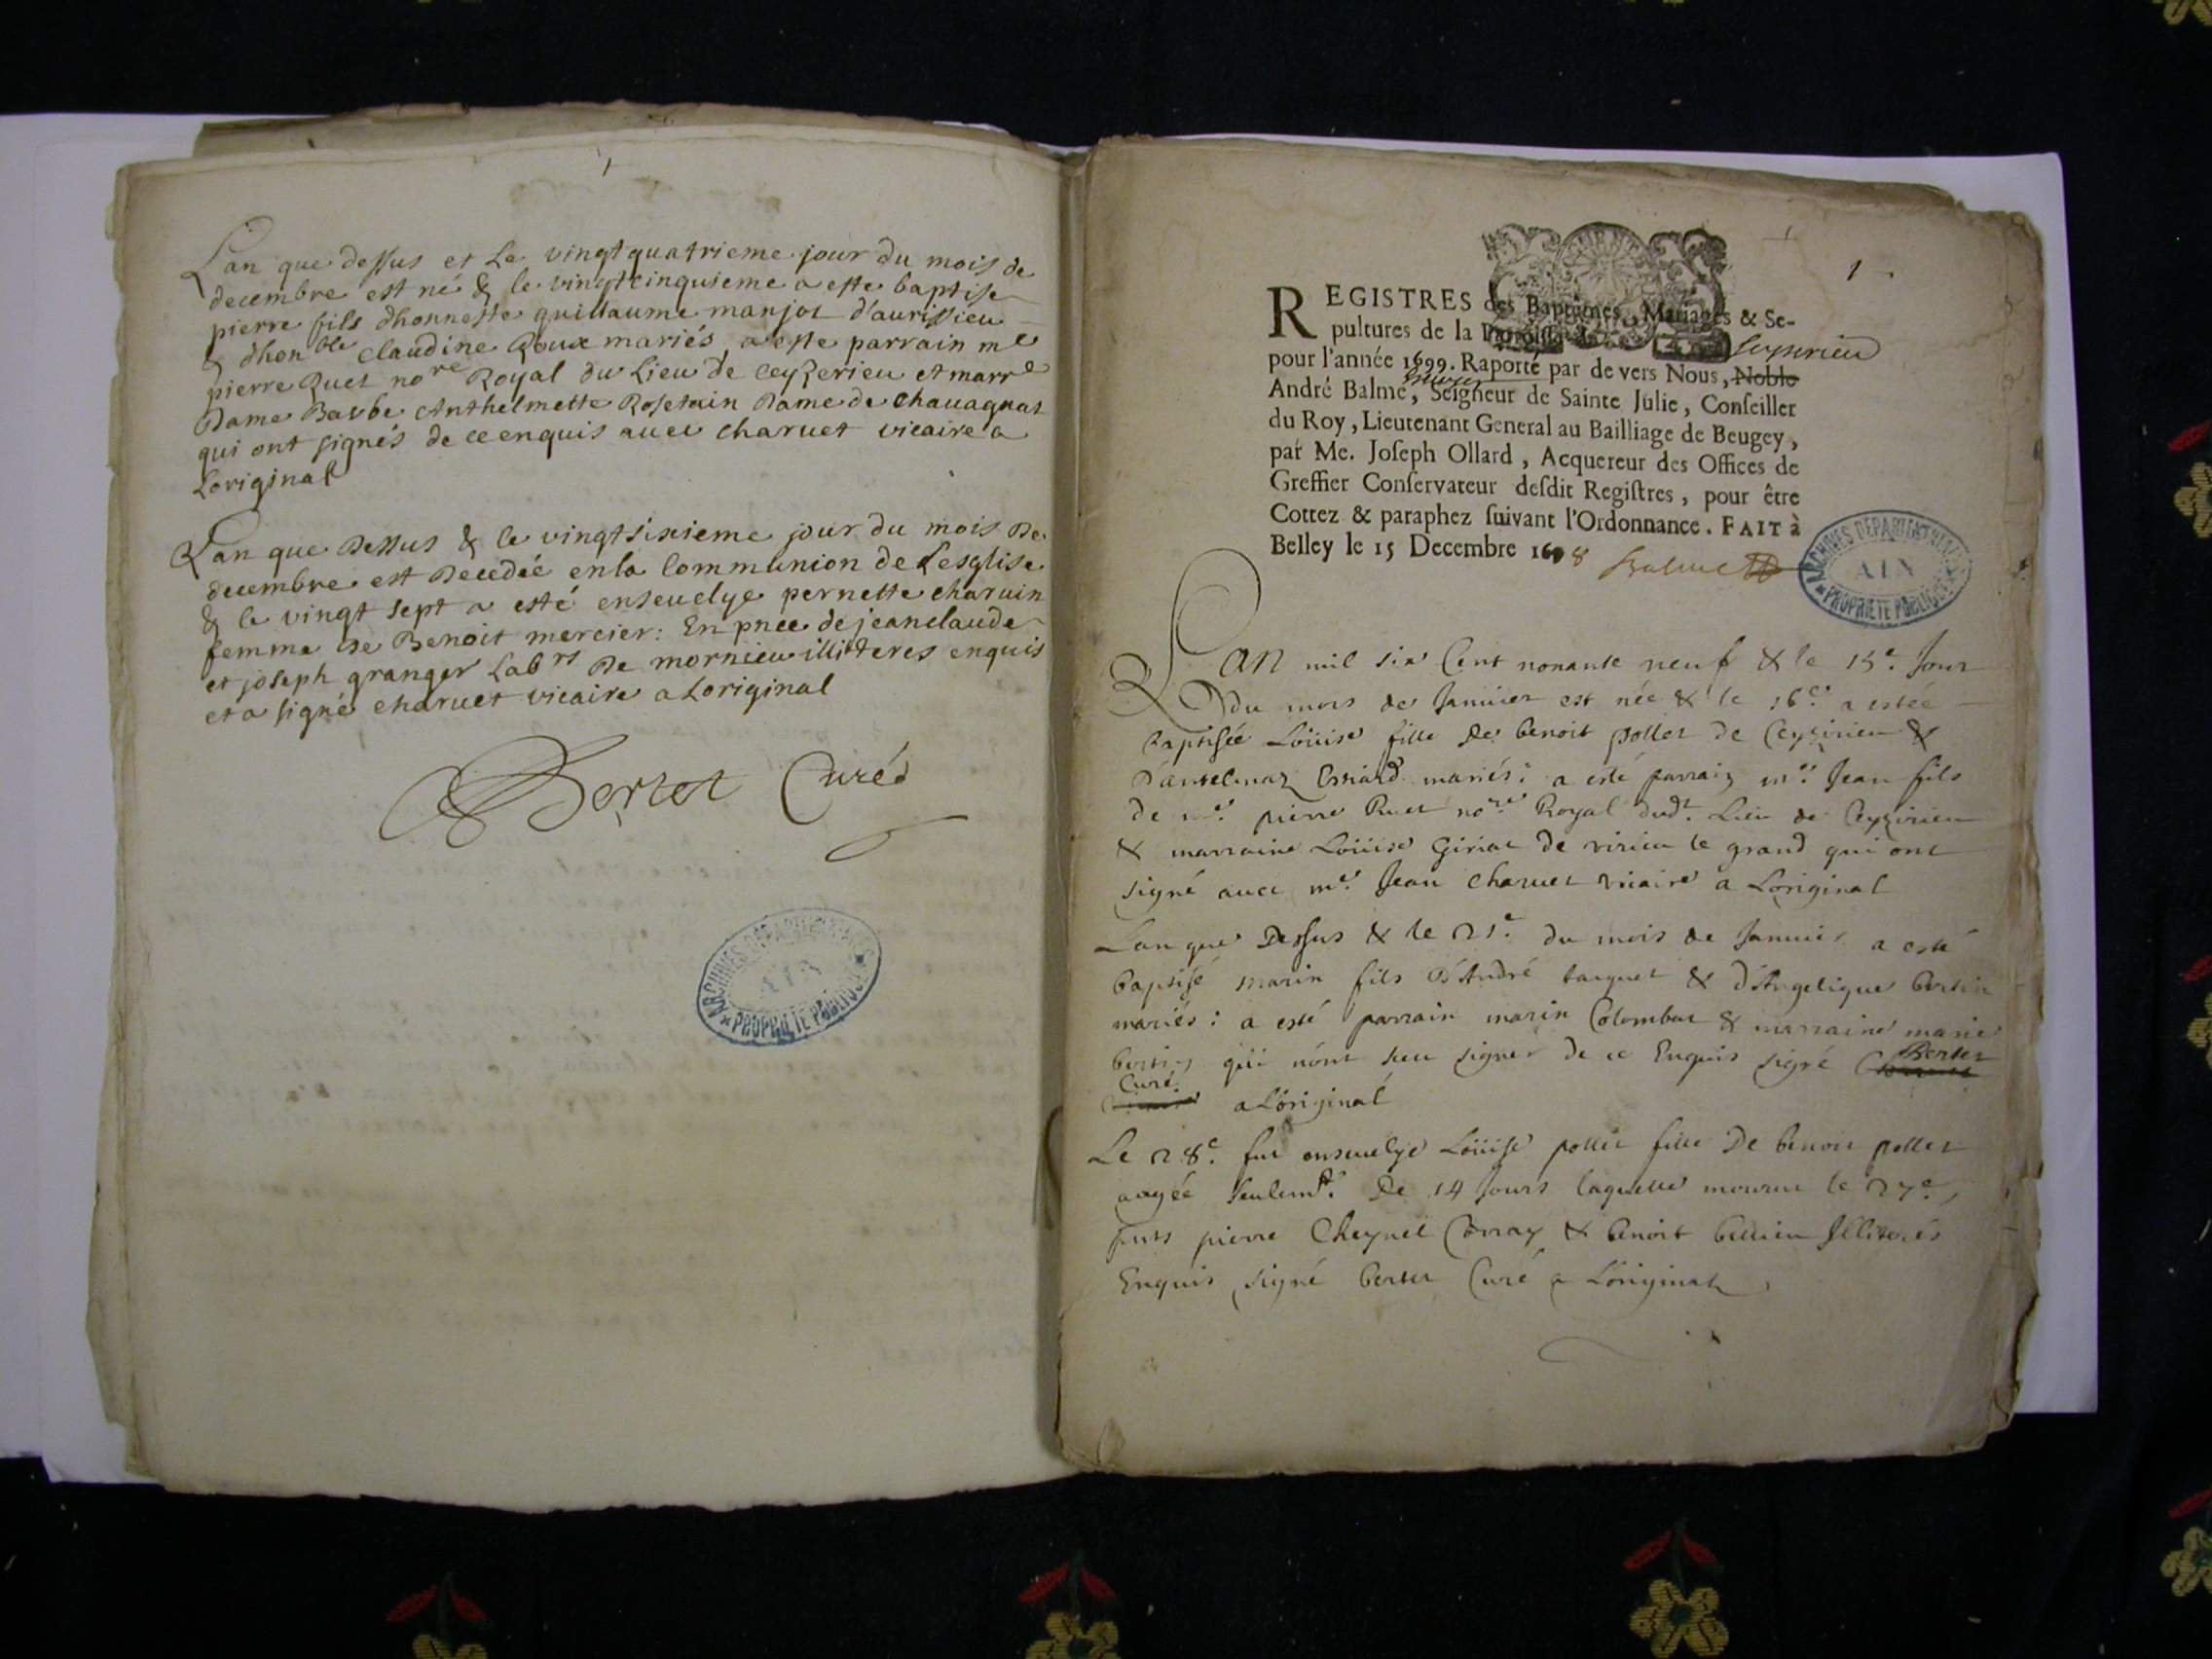 Lan que dessus et Le vingtquatrieme jour du mois de
decembre est né & le vingtcinquieme a este baptise
pierre fils dhonneste guillaume manjot d'aurissieu
& dhonble Claudine Roux mariés a este parrain me
pierre Ruet nore Royal du Lieu de ceyzerieu et marre
Dame Barbe Anthelmette Rosetain Dame de Chauagnat
qui ont signés de ce enquis auec charuet vicaire a
Loriginal
Lan que dessus & le vingtsixieme jour du mois de
decembre est decedée en la Communion de Lesglise
& le vingt sept a esté enseuelye pernette charuin
femme de Benoit mercier: En pnce de jeanclaude
et joseph granger Labrs de mornieu illitteres enquis
et a signé charuet vicaire a Loriginal
Bertet Curé
ARCHIVES DEPARTEMENTALES
AIN
PROPRIETE PUBLIQUE
1
REGISTRES des Baptêmes, Mariages & Se-
pultures de la Paroisse de Seyserieu
pour l'année 1699. Raporté par de vers Nous, Noble
André Balme, Seigneur de Sainte Julie, Conseiller
du Roy, Lieutenant General au Bailliage de Beugey,
par Me. Joseph Ollard, Acquereur des Offices de
Greffier Conservateur desdit Registres, pour être
Cottez & paraphez suivant l'Ordonnance. FAIT à
Belley le 15 Decembre 1698 Balme
ARCHIVES DEPARTEMENTALES
AIN
PROPRIETE PUBLIQUE
Lan mil six Cent nonante neuf & le 15e. Jour
du mois de Januier est née & le 16e. a estée
baptisée Loüise fille de benoit pollet de Ceyzirieu &
mariés: a esté parrain me. Jean fils
de me. pierre Ruet nore. Royal dudt. Lieu de Ceyzirieu
& marraine Loüise Giriat de virieu le grand qui ont
signé auec me. Jean Charuet vicaire a Loriginal
Lan que Dessus & le 21e. du mois de Januier a esté
baptisé marin fils D'André & d'Angelique bertin
mariés: a esté parrain marin Colombat & marraine marie
bertin qui nont sceu signer de ce Enquis signé Bertet
Curé a Loriginal
Le 28e. fut enseuelye Loüise pollet fille De benoit pollet
aagée seulemt. De 14 Jours laquelle mourut le 27e,
pnts pierre Cheynel & benoit Illiterés
Enquis signé bertet Curé a Loriginal